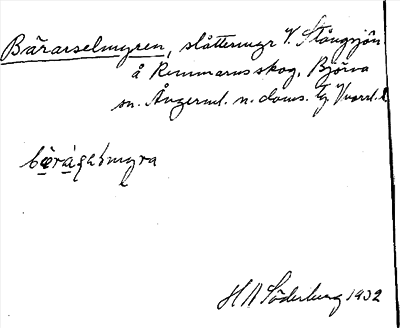 Bärarselmyren, slåttermyr V. Stångsjön
å Remmarns skog, Björna
sn. Ångerml. n. doms.
bärasel myra
H N Söderberg 1932